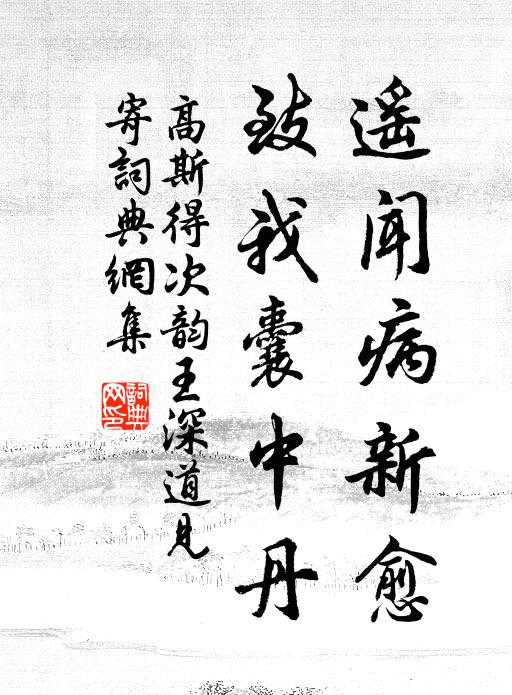 遥闻病新愈
致我囊中丹
高斯得次韵王深道见
寄詞典網集
詞典网印